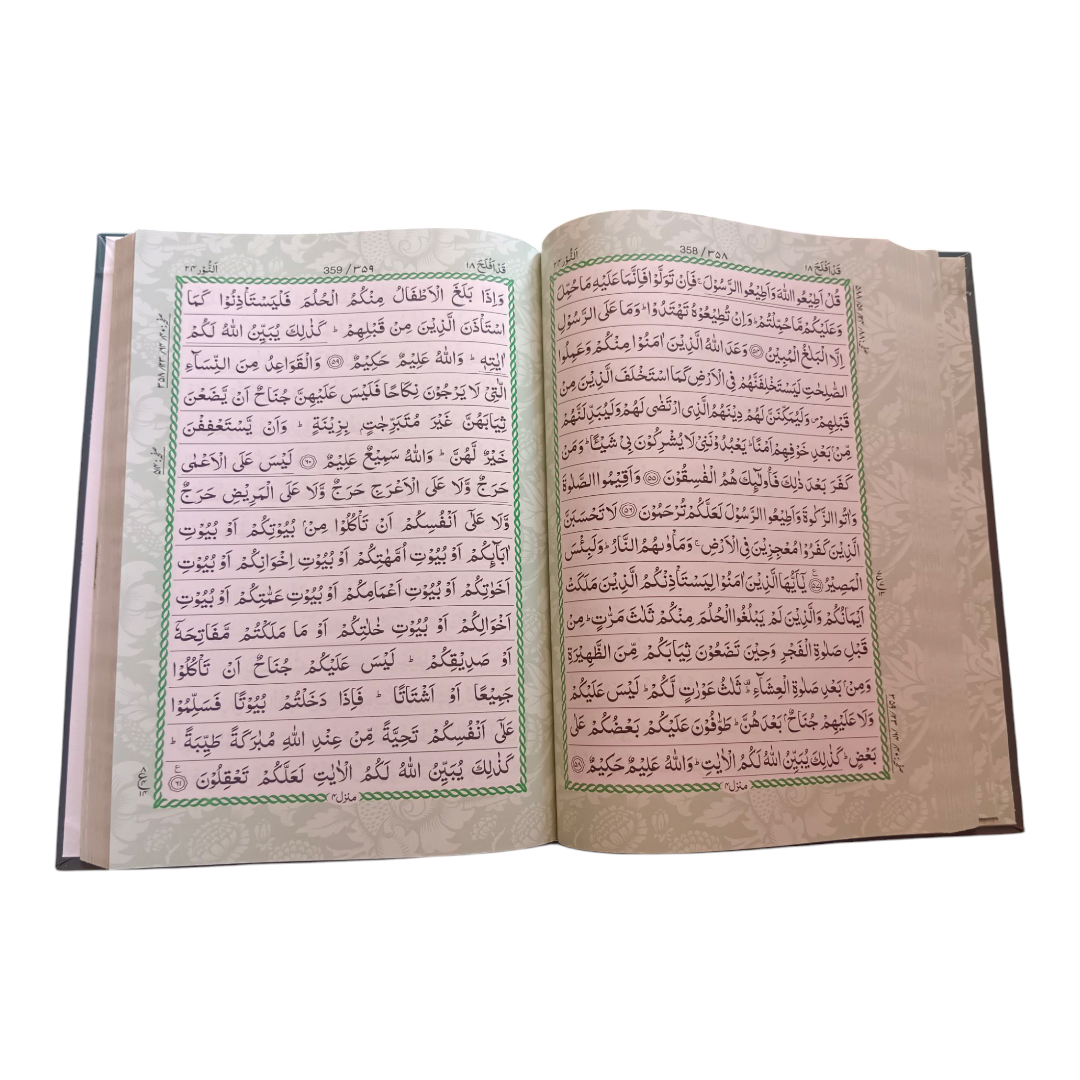 قَدۡ اَفۡلَحَ ١٨
358 / ٣٥٨
اَلنُّوۡر ٢٤
قُلۡ اَطِيۡعُوا اللّٰهَ وَاَطِيۡعُوا الرَّسُوۡلَ ۚ فَاِنۡ تَوَلَّوۡا فَاِنَّمَا عَلَيۡهِ مَا حُمِّلَ
وَعَلَيۡكُمۡ مَّا حُمِّلۡتُمۡ ؕ وَاِنۡ تُطِيۡعُوۡهُ تَهۡتَدُوۡا ؕ وَمَا عَلَى الرَّسُوۡلِ
اِلَّا الۡبَلٰغُ الۡمُبِيۡنُ ﴿٥٤﴾ وَعَدَ اللّٰهُ الَّذِيۡنَ اٰمَنُوۡا مِنۡكُمۡ وَعَمِلُوا
الصّٰلِحٰتِ لَيَسۡتَخۡلِفَنَّهُمۡ فِى الۡاَرۡضِ كَمَا اسۡتَخۡلَفَ الَّذِيۡنَ مِنۡ
قَبۡلِهِمۡ ۪ وَلَيُمَكِّنَنَّ لَهُمۡ دِيۡنَهُمُ الَّذِى ارۡتَضٰى لَهُمۡ وَلَيُبَدِّلَنَّهُمۡ
مِّنۡۢ بَعۡدِ خَوۡفِهِمۡ اَمۡنًا ؕ يَعۡبُدُوۡنَنِىۡ لَا يُشۡرِكُوۡنَ بِىۡ شَيۡــًٔـا ؕ وَمَنۡ
كَفَرَ بَعۡدَ ذٰلِكَ فَاُولٰٓٮِٕكَ هُمُ الۡفٰسِقُوۡنَ ﴿٥٥﴾ وَاَقِيۡمُوا الصَّلٰوةَ
وَاٰتُوا الزَّكٰوةَ وَاَطِيۡعُوا الرَّسُوۡلَ لَعَلَّكُمۡ تُرۡحَمُوۡنَ ﴿٥٦﴾ لَا تَحۡسَبَنَّ
الَّذِيۡنَ كَفَرُوۡا مُعۡجِزِيۡنَ فِى الۡاَرۡضِ ۚ وَمَاۡوٰٮهُمُ النَّارُ ؕ وَلَبِئۡسَ
الۡمَصِيۡرُ ﴿٥٧﴾ يٰۤاَيُّهَا الَّذِيۡنَ اٰمَنُوۡا لِيَسۡتَاۡذِنۡكُمُ الَّذِيۡنَ مَلَكَتۡ
اَيۡمَانُكُمۡ وَالَّذِيۡنَ لَمۡ يَبۡلُغُوا الۡحُلُمَ مِنۡكُمۡ ثَلٰثَ مَرّٰتٍ ؕ مِنۡ
قَبۡلِ صَلٰوةِ الۡفَجۡرِ وَحِيۡنَ تَضَعُوۡنَ ثِيَابَكُمۡ مِّنَ الظَّهِيۡرَةِ
وَمِنۡۢ بَعۡدِ صَلٰوةِ الۡعِشَآءِ ؕ ثَلٰثُ عَوۡرٰتٍ لَّكُمۡ ؕ لَيۡسَ عَلَيۡكُمۡ
وَلَا عَلَيۡهِمۡ جُنَاحٌۢ بَعۡدَهُنَّ ؕ طَوّٰفُوۡنَ عَلَيۡكُمۡ بَعۡضُكُمۡ عَلٰى
بَعۡضٍ ؕ كَذٰلِكَ يُبَيِّنُ اللّٰهُ لَكُمُ الۡاٰيٰتِ ؕ وَاللّٰهُ عَلِيۡمٌ حَكِيۡمٌ ﴿٥٨﴾
منزل ٤
قَدۡ اَفۡلَحَ ١٨
359 / ٣٥٩
اَلنُّوۡر ٢٤
وَاِذَا بَلَغَ الۡاَطۡفَالُ مِنۡكُمُ الۡحُلُمَ فَلۡيَسۡتَاۡذِنُوۡا كَمَا
اسۡتَاۡذَنَ الَّذِيۡنَ مِنۡ قَبۡلِهِمۡ ؕ كَذٰلِكَ يُبَيِّنُ اللّٰهُ لَكُمۡ
اٰيٰتِهٖ ؕ وَاللّٰهُ عَلِيۡمٌ حَكِيۡمٌ ﴿٥٩﴾ وَالۡقَوَاعِدُ مِنَ النِّسَآءِ
الّٰتِىۡ لَا يَرۡجُوۡنَ نِكَاحًا فَلَيۡسَ عَلَيۡهِنَّ جُنَاحٌ اَنۡ يَّضَعۡنَ
ثِيَابَهُنَّ غَيۡرَ مُتَبَرِّجٰتٍۭ بِزِيۡنَةٍ ؕ وَاَنۡ يَّسۡتَعۡفِفۡنَ
خَيۡرٌ لَّهُنَّ ؕ وَاللّٰهُ سَمِيۡعٌ عَلِيۡمٌ ﴿٦٠﴾ لَيۡسَ عَلَى الۡاَعۡمٰى
حَرَجٌ وَّلَا عَلَى الۡاَعۡرَجِ حَرَجٌ وَّلَا عَلَى الۡمَرِيۡضِ حَرَجٌ
وَّلَا عَلٰٓى اَنۡفُسِكُمۡ اَنۡ تَاۡكُلُوۡا مِنۡۢ بُيُوۡتِكُمۡ اَوۡ بُيُوۡتِ
اٰبَآٮِٕكُمۡ اَوۡ بُيُوۡتِ اُمَّهٰتِكُمۡ اَوۡ بُيُوۡتِ اِخۡوَانِكُمۡ اَوۡ بُيُوۡتِ
اَخَوٰتِكُمۡ اَوۡ بُيُوۡتِ اَعۡمَامِكُمۡ اَوۡ بُيُوۡتِ عَمّٰتِكُمۡ اَوۡ بُيُوۡتِ
اَخۡوَالِكُمۡ اَوۡ بُيُوۡتِ خٰلٰتِكُمۡ اَوۡ مَا مَلَكۡتُمۡ مَّفَاتِحَهٗۤ
اَوۡ صَدِيۡقِكُمۡ ؕ لَيۡسَ عَلَيۡكُمۡ جُنَاحٌ اَنۡ تَاۡكُلُوۡا
جَمِيۡعًا اَوۡ اَشۡتَاتًا ؕ فَاِذَا دَخَلۡتُمۡ بُيُوۡتًا فَسَلِّمُوۡا
عَلٰٓى اَنۡفُسِكُمۡ تَحِيَّةً مِّنۡ عِنۡدِ اللّٰهِ مُبٰرَكَةً طَيِّبَةً ؕ
كَذٰلِكَ يُبَيِّنُ اللّٰهُ لَكُمُ الۡاٰيٰتِ لَعَلَّكُمۡ تَعۡقِلُوۡنَ ﴿٦١﴾
منزل ٤